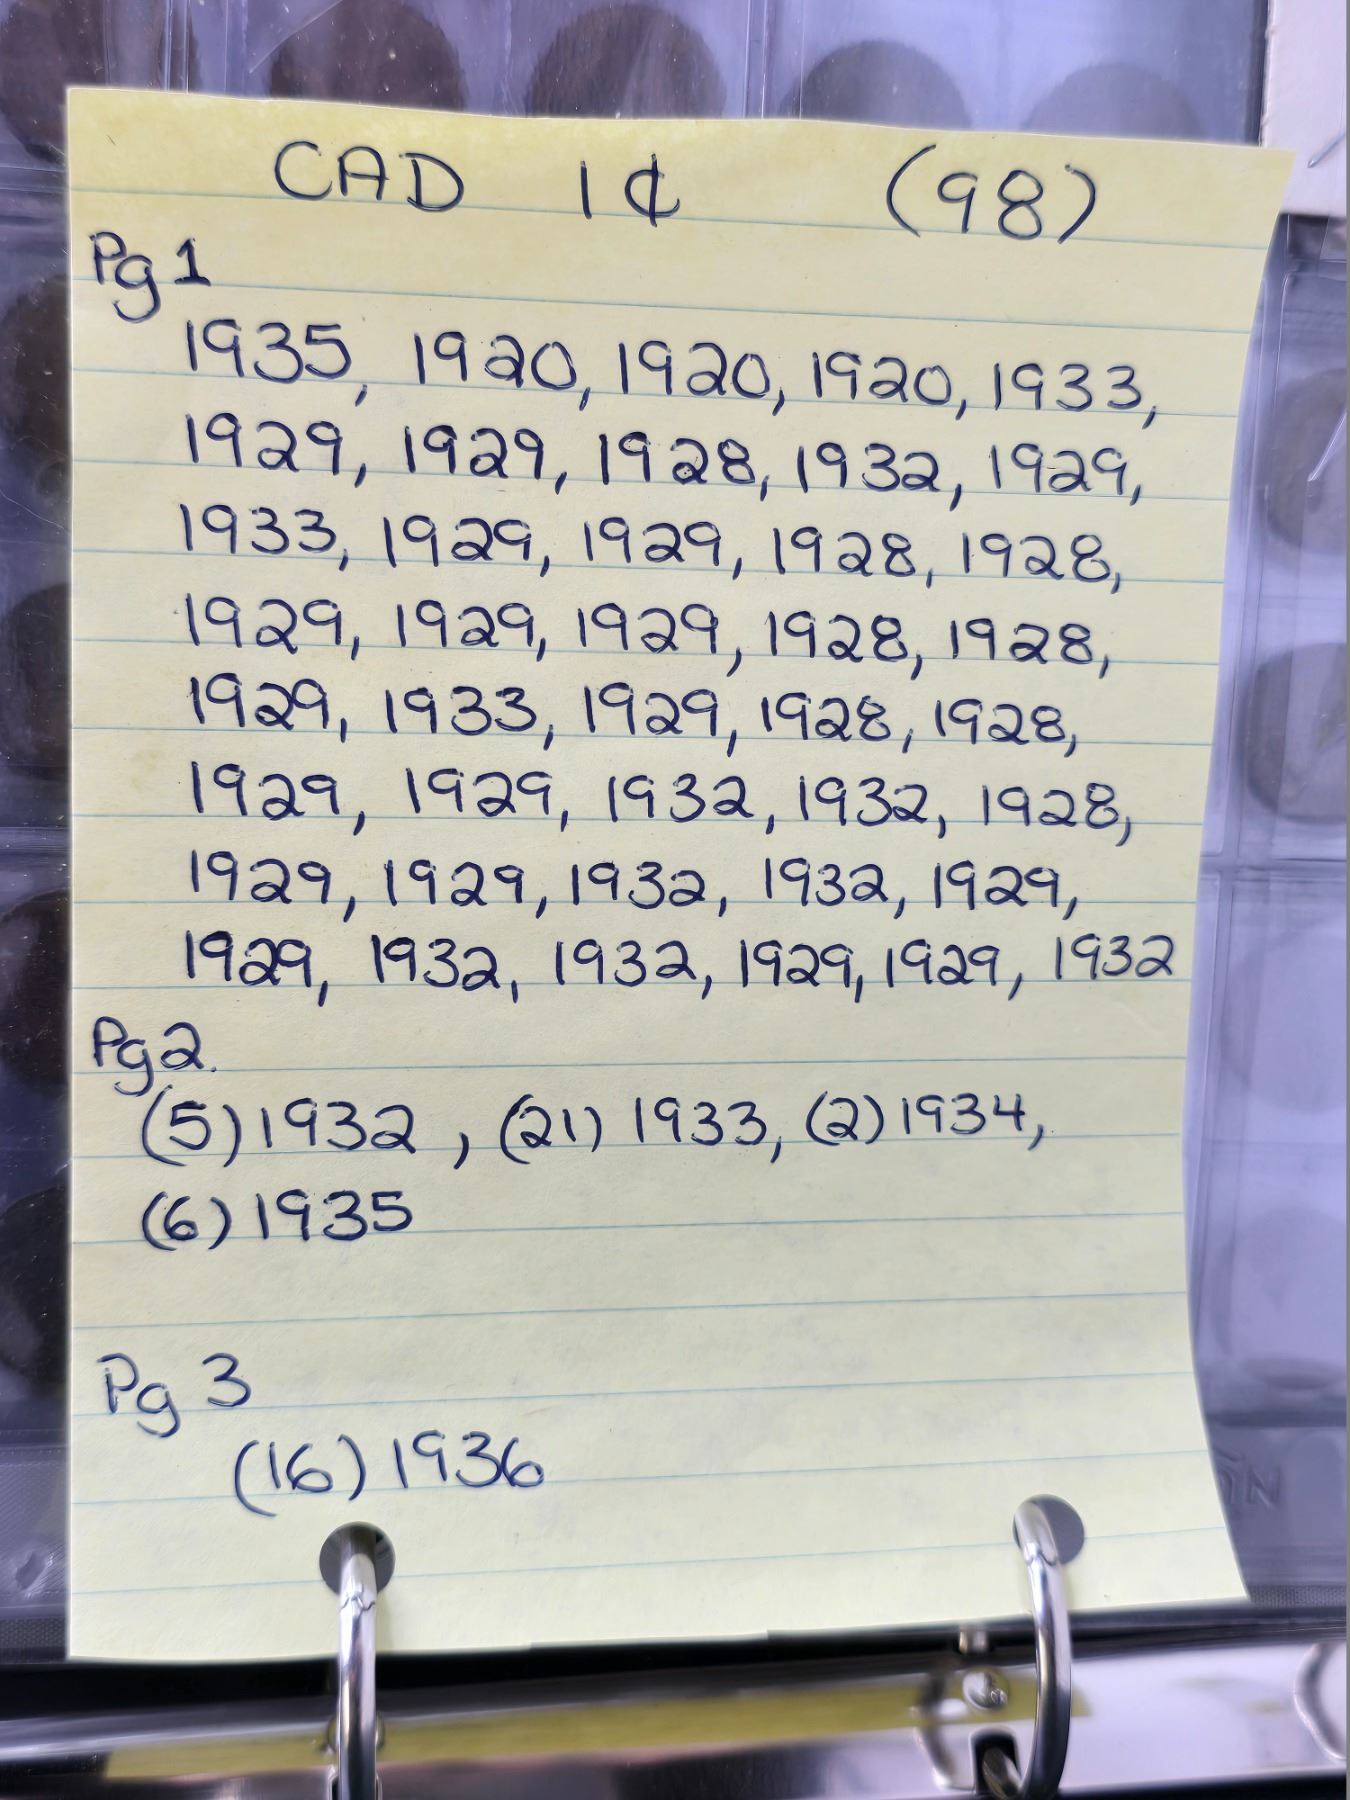 CAD 1¢ (98)
Pg 1
1935, 1920, 1920, 1920, 1933,
1929, 1929, 1928, 1932, 1929,
1933, 1929, 1929, 1928, 1928,
1929, 1929, 1929, 1928, 1928,
1929, 1933, 1929, 1928, 1928,
1929, 1929, 1932, 1932, 1928,
1929, 1929, 1932, 1932, 1929,
1929, 1932, 1932, 1929, 1929, 1932
Pg 2.
(5) 1932, (21) 1933, (2) 1934,
(6) 1935
Pg 3
(16) 1936